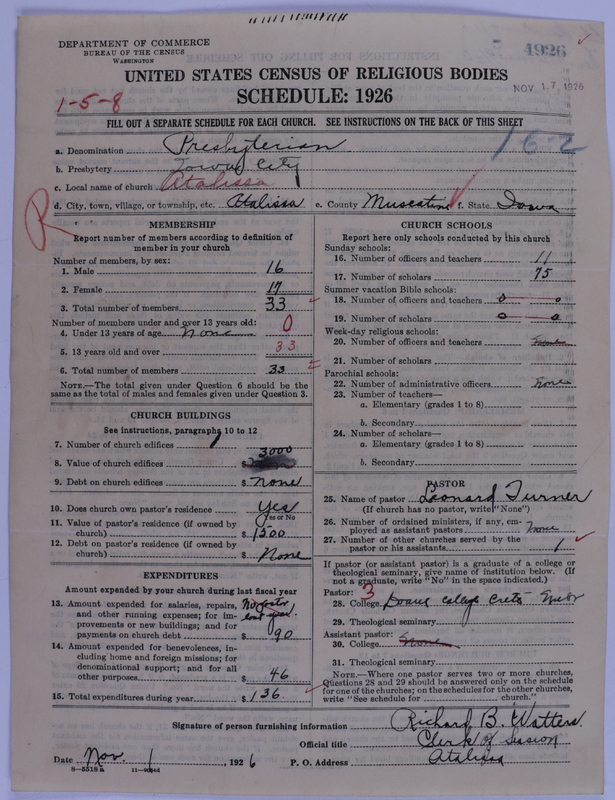 DEPARTMENT OF COMMERCE
BUREAU OF THE CENSUS
WASHINGTON
4926
UNITED STATES CENSUS OF RELIGIOUS BODIES
NOV 17 1926
SCHEDULE: 1926
1-5-8
FILL OUT A SEPARATE SCHEDULE FOR EACH CHURCH. SEE INSTRUCTIONS ON THE BACK OF THIS SHEET
a. Denomination Presbyterian
162
b. Presbytery Iowa City
c. Local name of church Atalissa
d. City, town, village, or township, etc. Atalissa e. County Muscatine f. State Iowa
R
MEMBERSHIP
Report number of members according to definition of
member in your church
Number of members, by sex:
1. Male 16
2. Female 17
3. Total number of members 33
Number of members under and over 13 years old: 0
4. Under 13 years of age none
5. 13 years old and over 33
6. Total number of members 33
NOTE.—The total given under Question 6 should be the
same as the total of males and females given under Question 3.
CHURCH BUILDINGS
See instructions, paragraphs 10 to 12
7. Number of church edifices 1
8. Value of church edifices $ 3000
9. Debt on church edifices $ none
10. Does church own pastor's residence Yes
Yes or No
11. Value of pastor's residence (if owned by
church) $ 1500
12. Debt on pastor's residence (if owned by
church) $ None
EXPENDITURES
Amount expended by your church during last fiscal year
13. Amount expended for salaries, repairs, No pastor
and other running expenses; for im- last year
provements or new buildings; and for
payments on church debt $ 90
14. Amount expended for benevolences, in-
cluding home and foreign missions; for
denominational support; and for all
other purposes $ 46
15. Total expenditures during year $ 136
CHURCH SCHOOLS
Report here only schools conducted by this church
Sunday schools:
16. Number of officers and teachers 11
17. Number of scholars 75
Summer vacation Bible schools:
18. Number of officers and teachers 0 0
19. Number of scholars 0 0
Week-day religious schools:
20. Number of officers and teachers None
21. Number of scholars
Parochial schools:
22. Number of administrative officers None
23. Number of teachers—
a. Elementary (grades 1 to 8)
b. Secondary
24. Number of scholars—
a. Elementary (grades 1 to 8)
b. Secondary
PASTOR
25. Name of pastor Leonard Turner
(If church has no pastor, write "None")
26. Number of ordained ministers, if any, em-
ployed as assistant pastors none
27. Number of other churches served by the
pastor or his assistants 1
If pastor (or assistant pastor) is a graduate of a college or
theological seminary, give name of institution below. (If
not a graduate, write "No" in the space indicated.)
Pastor: 3
28. College Doane colege Crete Nebr
29. Theological seminary
Assistant pastor:
30. College None
31. Theological seminary
NOTE.—Where one pastor serves two or more churches,
Questions 28 and 29 should be answered only on the schedule
for one of the churches; on the schedules for the other churches,
write "See schedule for church."
Signature of person furnishing information Richard B. Watters
Official title Clerk of Session
Date Nov. 1, 1926 P. O. Address Atalissa
8-5518a